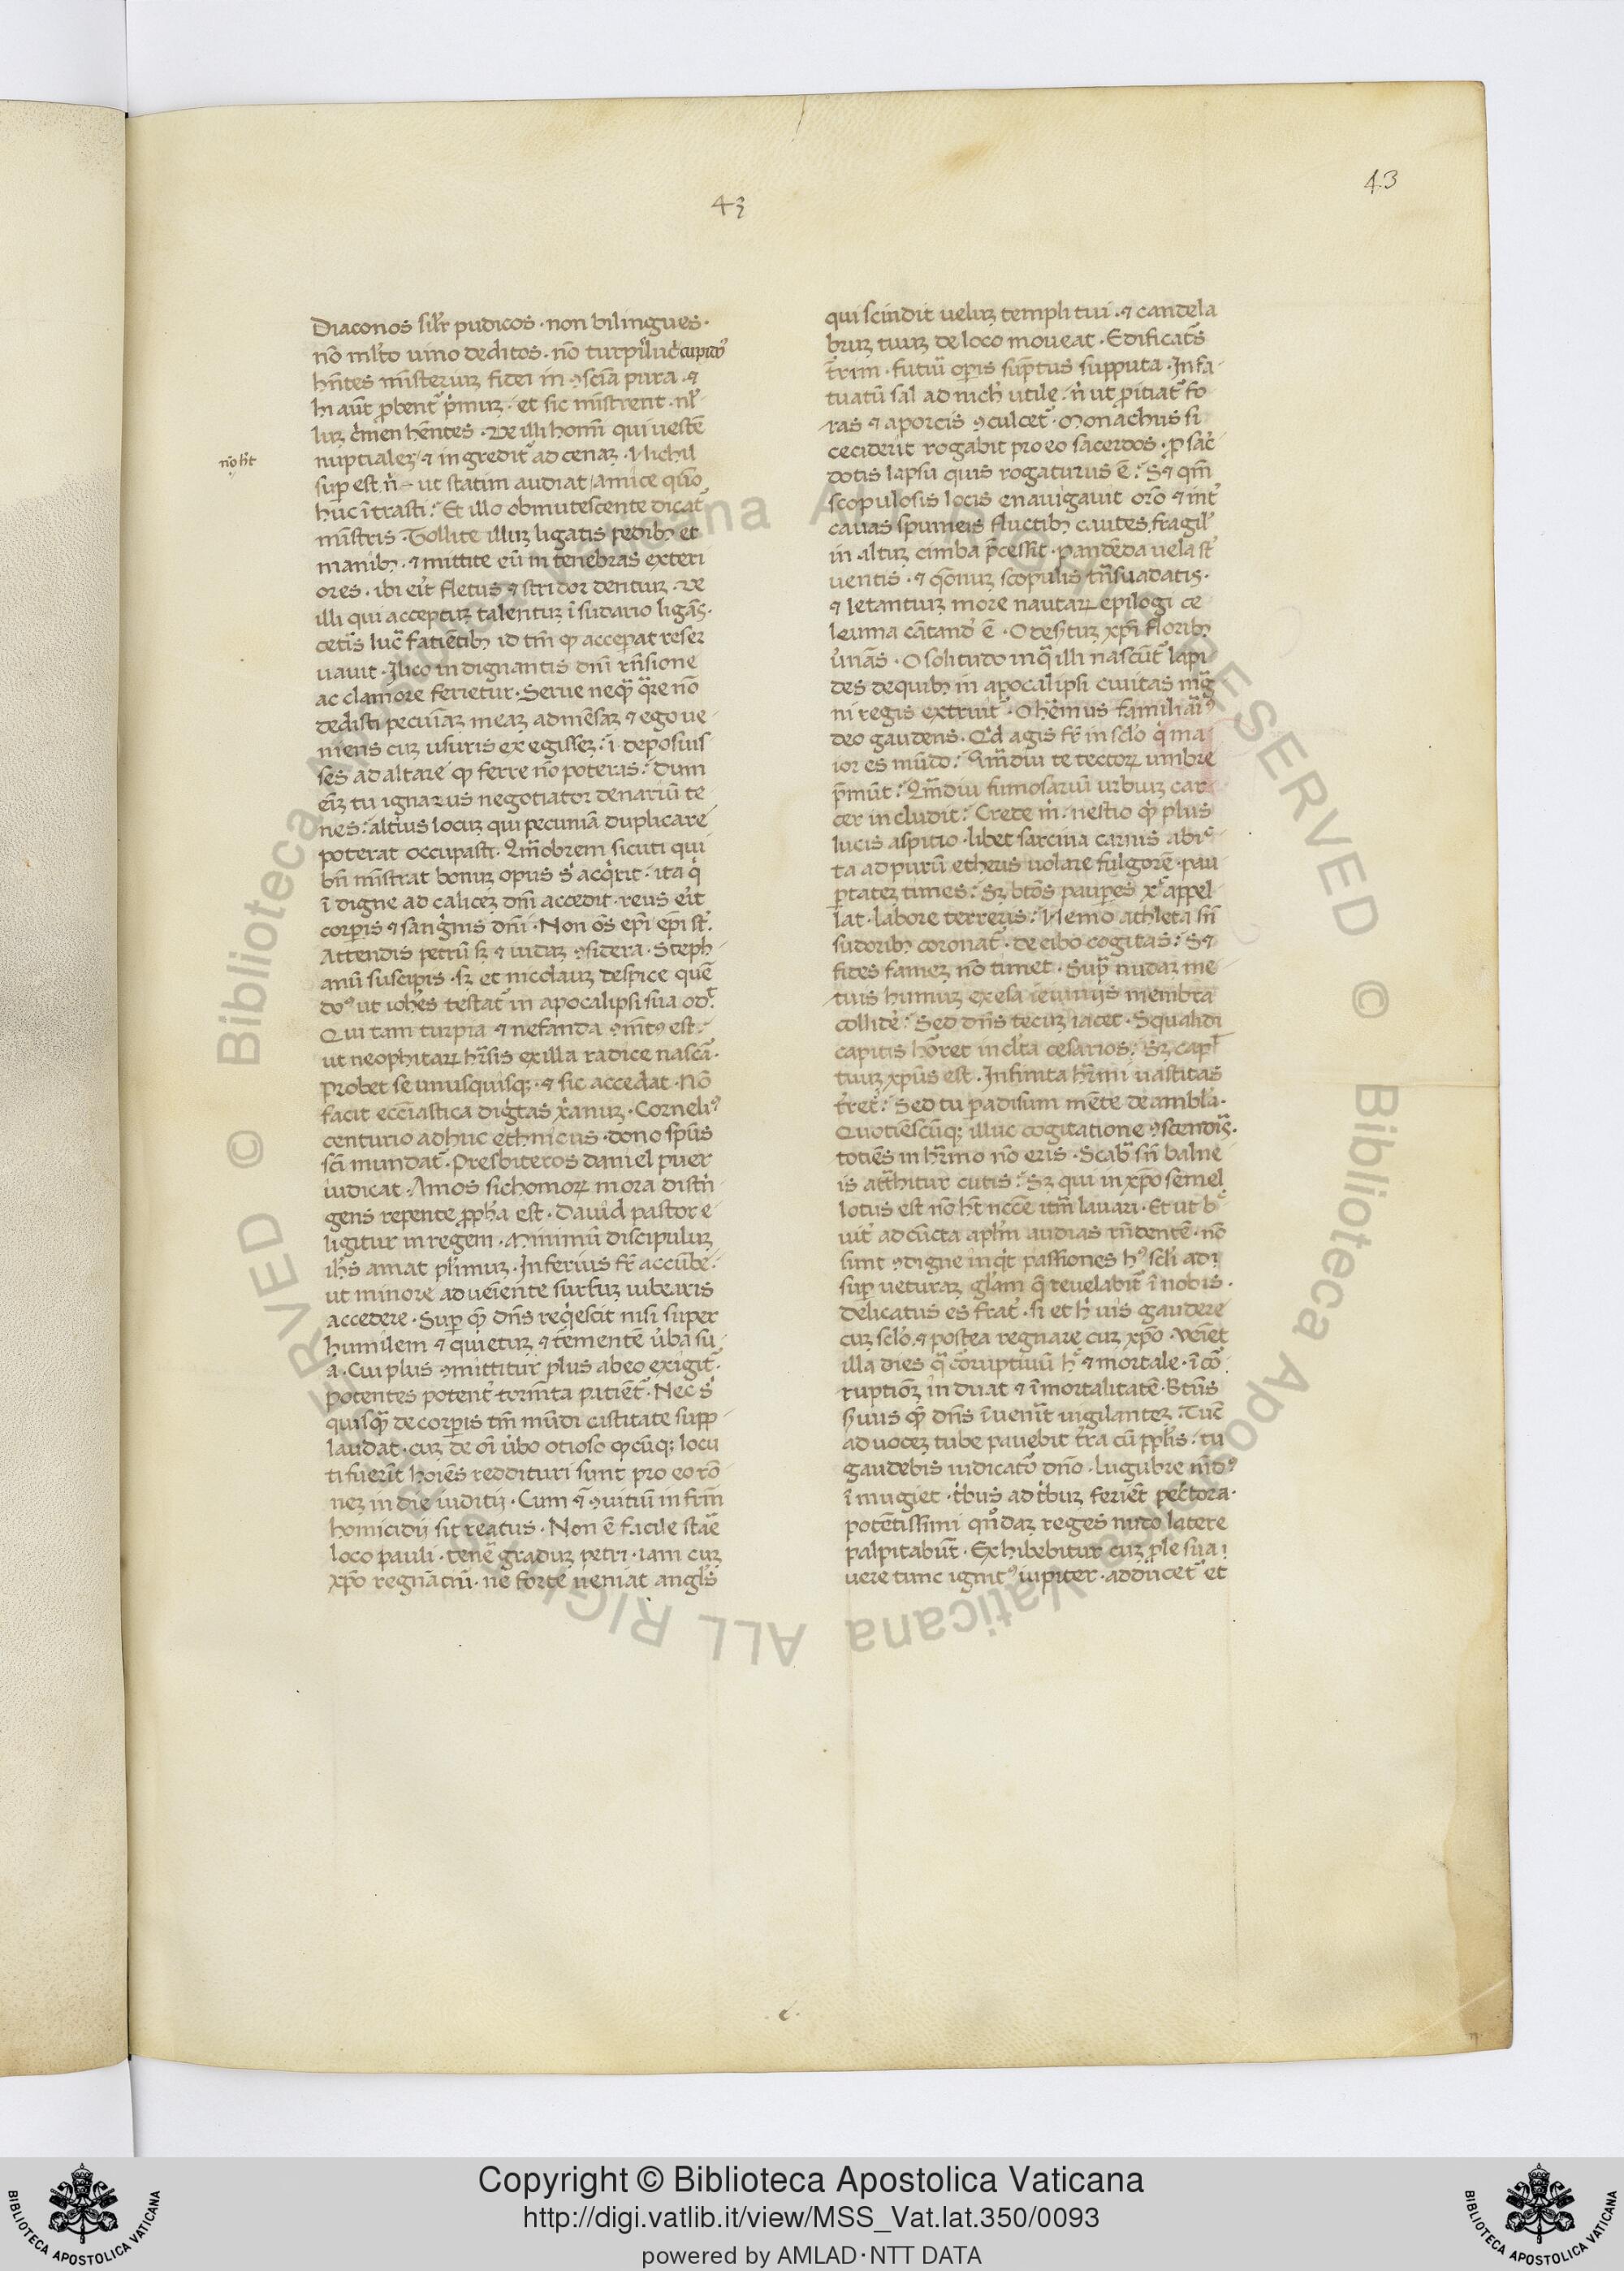 43
43
Diaconos silr̃ pudicos · non bilingues ·
nõ ml̃to uino deditos · nõ turpiluc̃cupid᷒
hñtes mĩsteriuꝫ fidei in ꝯsciã pura · ⁊
hi aũt ꝓbent᷒ p̃muꝫ · et sic mĩstrent · nl᷒
luꝫ c̃men hẽntes · Ve illi homĩ qui uestẽ
nuptialeꝫ ⁊ ingredit᷒ ad cenaꝫ · Nichil
nõ hẽt
suꝑ est ñ ut statim audiat / amice quõ
huc ĩtrasti : Et illo obmutescente dicat᷒
mĩstris · Tollite illuꝫ ligatis pedibꝫ et
manibꝫ · ⁊ mittite eũ in tenebras exteri
ores · ibi erit fletus ⁊ stridor dentiuꝫ · ve
illi qui acceptuꝫ talentuꝫ ĩ sudario ligãs ·
cetĩs luc̃ fatiẽtibꝫ id tm̃ ꝙ acceꝑat reser
uauit · Ilico indignantis dñi rñsione
ac clamore ferietur · Serue neq̃ᷓ q̃re nõ
dedisti pecuniaꝫ meaꝫ ad mẽsaꝫ ⁊ ego ue
niens cuꝫ usuris exegisseꝫ : i · deposuis
ses ad altare ꝙ ferre nõ poteras : dum
eĩꝫ tu ignarus negotiator denariũ te
nes : alterius locuꝫ qui pecuniã duplicare
poterat occupasti · Qm̃obrem sicuti qui
bñ mĩstrat bonuꝫ opus s᷒ acq̃rit · ita q̃
ĩdigne ad caliceꝫ dñi accedit · reus erit
corꝑis ⁊ sanguĩs dñi · Non oẽs ep̃i ep̃i st᷒ ·
Attendis petrũ sꝫ ⁊ iudaꝫ ꝯsidera · Steph
anũ suscipis · sꝫ et nicolauꝫ despice quẽ
do᷒ ut ioħes testat᷒ in apocalipsi sua od᷒ ·
Qui tam turpia ⁊ nefanda ꝯmẽt᷒ est ·
ut neophitaꝝ hr̃sis ex illa radice nascã ·
Probet se unusquisqꝫ · ⁊ sic accedat · Nõ
facit ecc̃iastica dig̃tas xp̃ianuꝫ · Corneli᷒
centurio adhuc ethnicus · dono sp̃us
sc̃i mundat᷒ · Presbiteros daniel puer
iudicat · Amos sichomoꝝ mora distr̃
gens repente ꝓpħa est · Dauid pastor e
ligitur in regem · Minimũ discipuluꝫ
iħs amat plimuꝫ · Inferius fr̃ accũbe ·
ut minore adueiente sursuꝫ iubearis
accedere · Suꝑ quẽ dñs req̃escit nisi super
humilem ⁊ quietuꝫ ⁊ t̃mentẽ ũba su
a · Cui plus ꝯmittitur plus ab eo exigit᷒ ·
potentes potent᷒ tormĩta patient᷒ · Nec s᷒
quisqᷓ de corꝑis tm̃ mũdi castitate supp
laudat · cuꝫ de oĩ ũbo otioso ꝙcũqꝫ locu
ti fuerĩt hoiẽs reddituri sunt pro eo rõ
neꝫ in die iuditij · Cum ẽ ꝯuitiũ in frẽm
homicidij sit reatus · Non ẽ facile stare
loco pauli · tenẽ graduꝫ petri · iam cuꝫ
xp̃o regnãtiũ · ne forte ueniat angls̃
qui scindit ueluꝫ templi tui · ⁊ candela
bruꝫ tuuꝫ de loco moueat · Edificat᷒s
t̃rim · futuri oꝑis suptus supputa · Infa
tuatũ sal ad nichl᷒ utile · ñ ut ꝓitiat᷒ fo
ras ⁊ a porcis ꝯculcet᷒ · Monachus si
ceciderit rogabit pro eo sacerdos : ꝓ sac᷒
dotis lapsu quis rogaturus ẽ : S⁊ qm̃
scopulosis locis enauigauit orõ ⁊ int᷒
cauas spumeis fluctibꝫ cautes fragil᷒
in altuꝫ cimba ꝓcessit · pandẽda uela st᷒
uentis · ⁊ qõnuꝫ scopulis trñsuadatis ·
⁊ letantiuꝫ more nautaꝝ epilogi ce
leuma cãtand᷒ ẽ · O desertuꝫ xp̃i floribꝫ
ũnãs · O solitudo in qᷓ illi nascũt᷒ lapi
des de quibꝫ in apocalipsi ciuitas mg̃
ni regis extruit᷒ · O ħemus familiari᷒
deo gaudens · Qd̃ agis fr̃ in sclõ q̃ ma
ior es mũdo : Qm̃diu te tectoꝝ umbre
p̃mũt : Qm̃diu fumosariũ urbiuꝫ car
cer includit : Crede m̃ · nescio q̃ plus
lucis aspitio · libet sarcina carnis abi᷒
ta ad purũ etheris uolare fulgorẽ · pau
ꝑtateꝫ times : sꝫ btõs pauꝑes x᷒ appel
lat · labore terreris : Nemo athleta sñ
sudoribꝫ coronat᷒ · de cibo cogitas : S⁊
fides fameꝫ nõ timet · Suꝑ nudaꝫ me
tuis humuꝫ exesa ieiunijs membra
collide᷒ : Sed dñs tecuꝫ iacet · Squalidi
capitis hõret inclta cesaries : Sꝫ cap᷒
tuuꝫ xp̃us est · Infinita hr̃mi uastitas
t̃ret᷒ : Sed tu padisum mẽte deambla ·
Quotiẽscũqꝫ illuc cogitatione ꝯscendis ·
totiẽs in hr̃mo nõ eris · Scab᷒ sñ balne
is att̃hitur cutis : Sꝫ qui in xp̃o semel
lotus est nõ ht̃ nccẽ itm̃ lauari · Et ut b᷒
uit᷒ ad cũcta aplm̃ audias rñdentẽ · nõ
sunt ꝯdigne inq̃t passiones h᷒ scli ad
suꝑ ueturaꝫ gl̃am q̃ reuelabit᷒ ĩ nobis ·
delicatus es frat᷒ · si et h᷒ uis gaudere
cuꝫ sclõ · ⁊ postea regnare cuꝫ xp̃o · Veniet
illa dies qᷓ coruptiuũ h᷒ ⁊ mortale · ĩ co᷒
ruptioẽꝫ induat ⁊ ĩmortalitatẽ · Btũs
suus quẽ dñs ĩuenĩt uigilanteꝫ · Tuc̃
ad uoceꝫ tube pauebit t̃ra cũ ppl̃is · tu
gaudebis iudicatõ dño · lugubre mũd᷒
ĩmugiet · t̃bus ad t̃buꝫ ferient pectora ·
potẽtissimi qũdaꝫ reges nudo latere
palpitabũt · Exhibebitur cuꝫ ꝓle sua
uere tunc ignit᷒ iupiter · adducet᷒ et
Copyright © Biblioteca Apostolica Vaticana
http://digi.vatlib.it/view/MSS_Vat.lat.350/0093
powered by AMLAD·NTT DATA